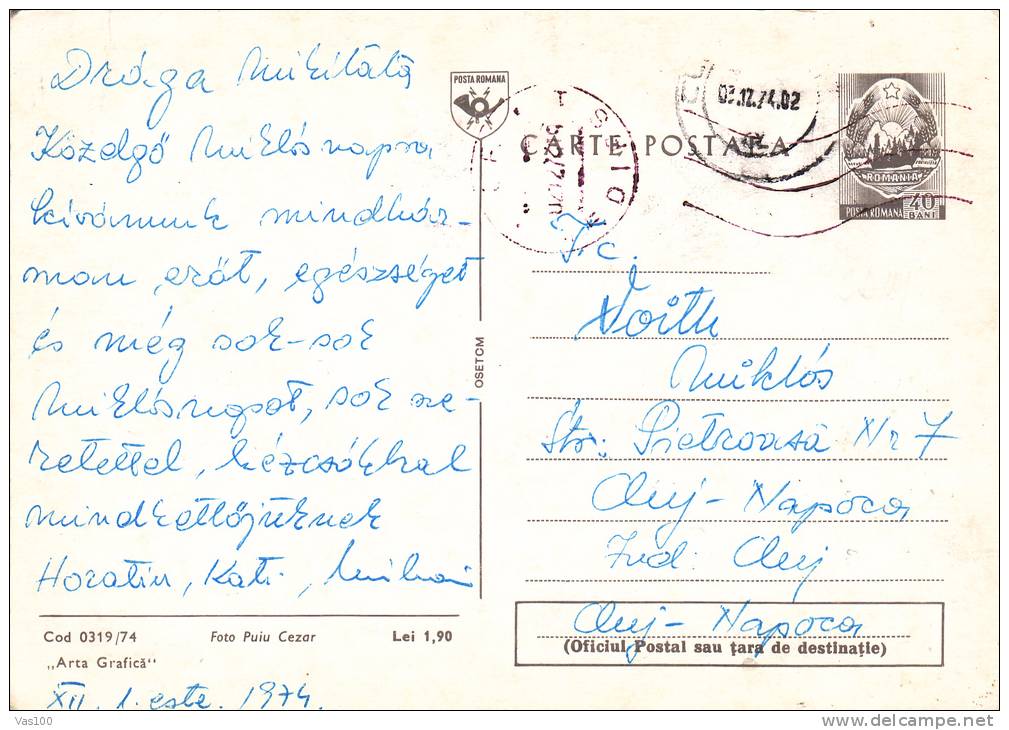 Drága Mikitátá
Közelgő Miklós napra
kívánunk mindhár-
man erőt, egészséget
és még sok-sok
Miklósnapot, sok sze-
retettel, kézcsókkal
mindkettőjüknek
Horatiu, Kati, Mihai
Cod 0319/74 Foto Puiu Cezar Lei 1,90
„Arta Grafică"
XII. 1. este. 1974.
OSETCM
POSTA ROMANA
CARTE POSTALA
03.12.74.02
ROMANIA
POSTA ROMANA 40 BANI
Voith
Miklós
Str: Pietroasă Nr 7
Cluj-Napoca
Jud. Cluj
Cluj-Napoca
(Oficiul Postal sau țara de destinație)
Vas100
delcampe.net